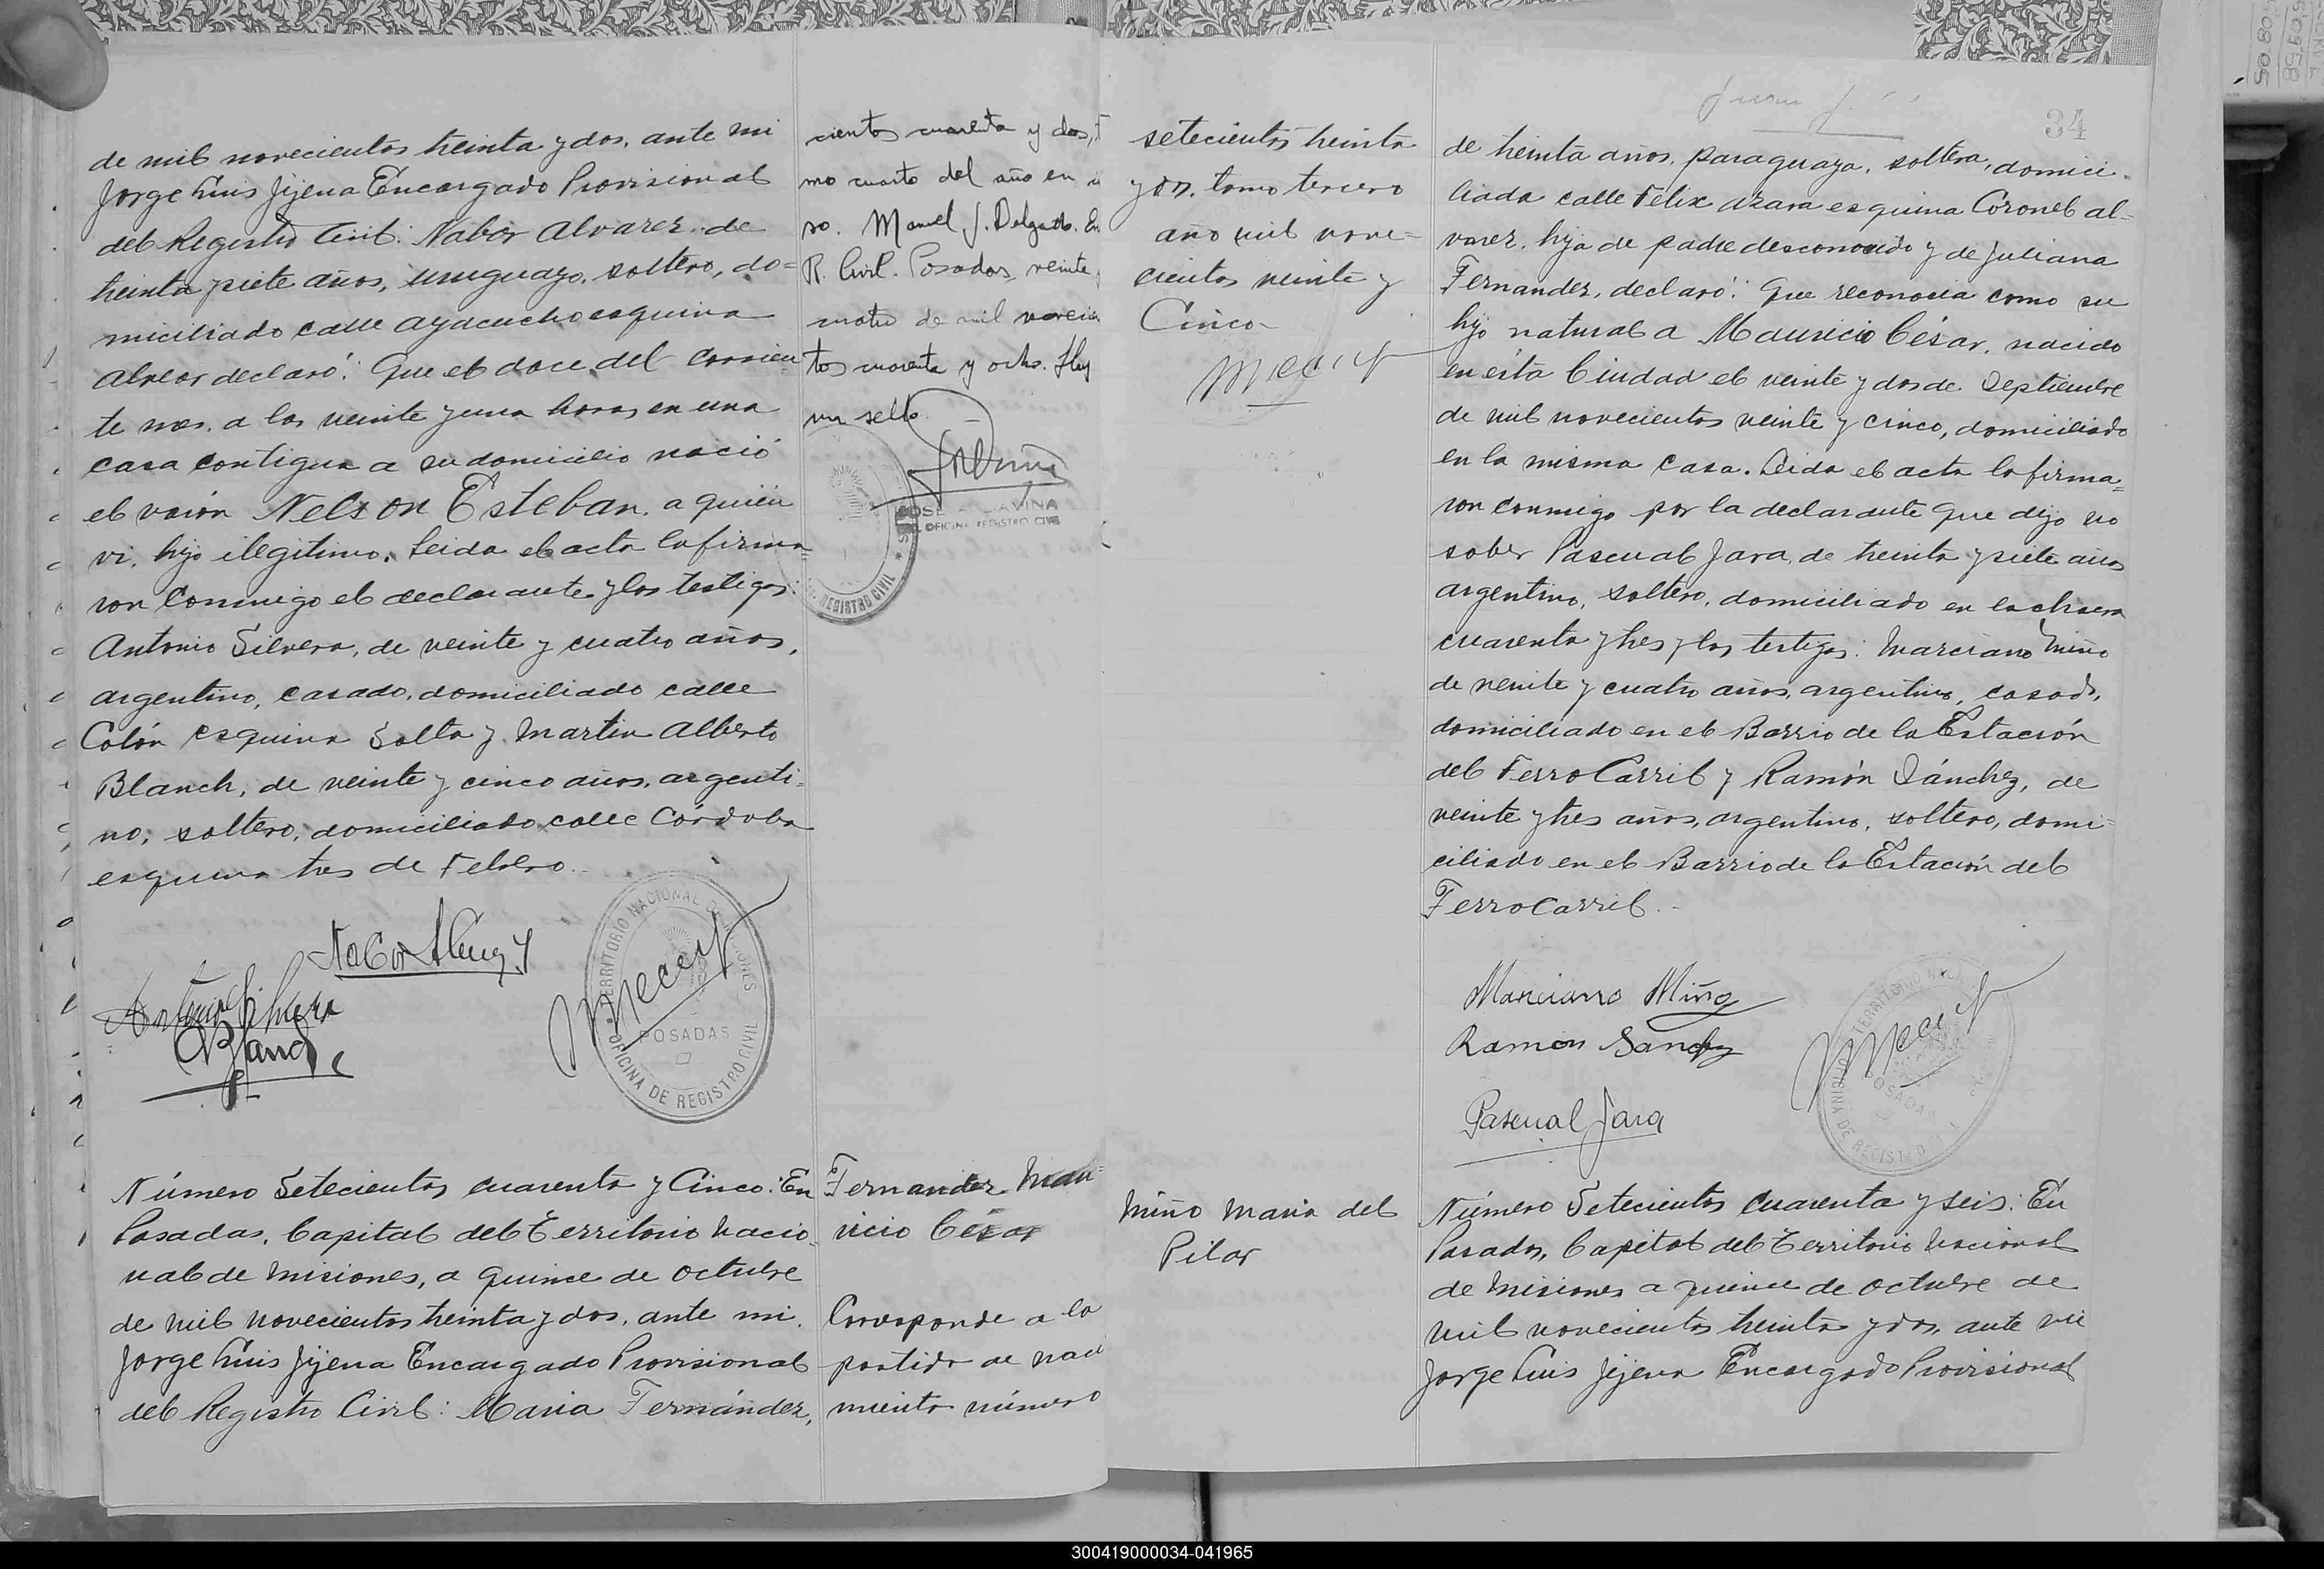 de mil novecientos treinta y dos, ante mi
Jorge Luis Jijena Encargado Provisional
del Registro Civil: Nabor Alvarez, de
treinta y siete años, uruguayo, soltero, do=
miciliado calle Ayacucho esquina
Alvear declaró: Que el doce del corrien
te mes, a las veinte y una horas, en una
casa contigua a su domicilio nació
el varón Nelson Esteban, a quien
vi, hijo ilegitimo. Leida el acta la firma=
ron conmigo el declarante y los testigos:
Antonio Silvera, de veinte y cuatro años,
argentino, casado, domiciliado calle
Colón esquina Salta y Martin Alberto
Blanch, de veinte y cinco años, argenti=
no, soltero, domiciliado calle Córdoba
esquina tres de Febrero.
Antonio Silvera
Blanch
TERRITORIO NACIONAL DE MISIONES
POSADAS
OFICINA DE REGISTRO CIVIL
Número Setecientos cuarenta y Cinco: En
Posadas, Capital del Territorio Nacio
nal de Misiones, a quince de Octubre
de mil novecientos treinta y dos, ante mi
Jorge Luis Jijena Encargado Provisional
del Registro Civil: Maria Fernández,
cientos cuarenta y dos,
mo cuarto del año en
so. Manuel J. Delgado. En
R. Civil. Posadas, veinte
cuatro de mil novecien
tos cuarenta y ocho. Hay
un sello.
OFICINA REGISTRO CIVIL
REGISTRO CIVIL
Fernandez Mau=
ricio César
Corresponde a la
partida de naci
miento número
setecientos treinta
y dos, tomo tercero
año mil nove=
cientos veinte y
Cinco-
34
de treinta años, paraguaya, soltera, domici=
liada calle Félix Azara esquina Coronel Al=
varez, hija de padre desconocido y de Juliana
Fernandez, declaró: Que reconocia como su
hijo natural a Mauricio César, nacido
en ésta Ciudad el veinte y dos de Septiembre
de mil novecientos veinte y cinco, domiciliado
en la misma casa. Leida el acta la firma=
ron conmigo por la declarante que dijo no
saber Pascual Jara, de treinta y siete años
argentino, soltero, domiciliado en la chacra
cuarenta y tres y los testigos: Marciano Miño
de veinte y cuatro años, argentino, casado,
domiciliado en el Barrio de la Estación
del FerroCarril y Ramón Sánchez, de
veinte y tres años, argentino, soltero, domi=
ciliado en el Barrio de la Estación del
FerroCarril.
Marciano Miño
Ramon Sanchez
Pascual Jara
TERRITORIO
POSADAS
OFICINA DE REGISTRO
Miño Maria del
Pilar
Número Setecientos Cuarenta y seis: En
Posadas, Capital del Territorio Nacional
de Misiones a quince de Octubre de
mil novecientos treinta y dos, ante mi
Jorge Luis Jijena Encargado Provisional
300419000034-041965